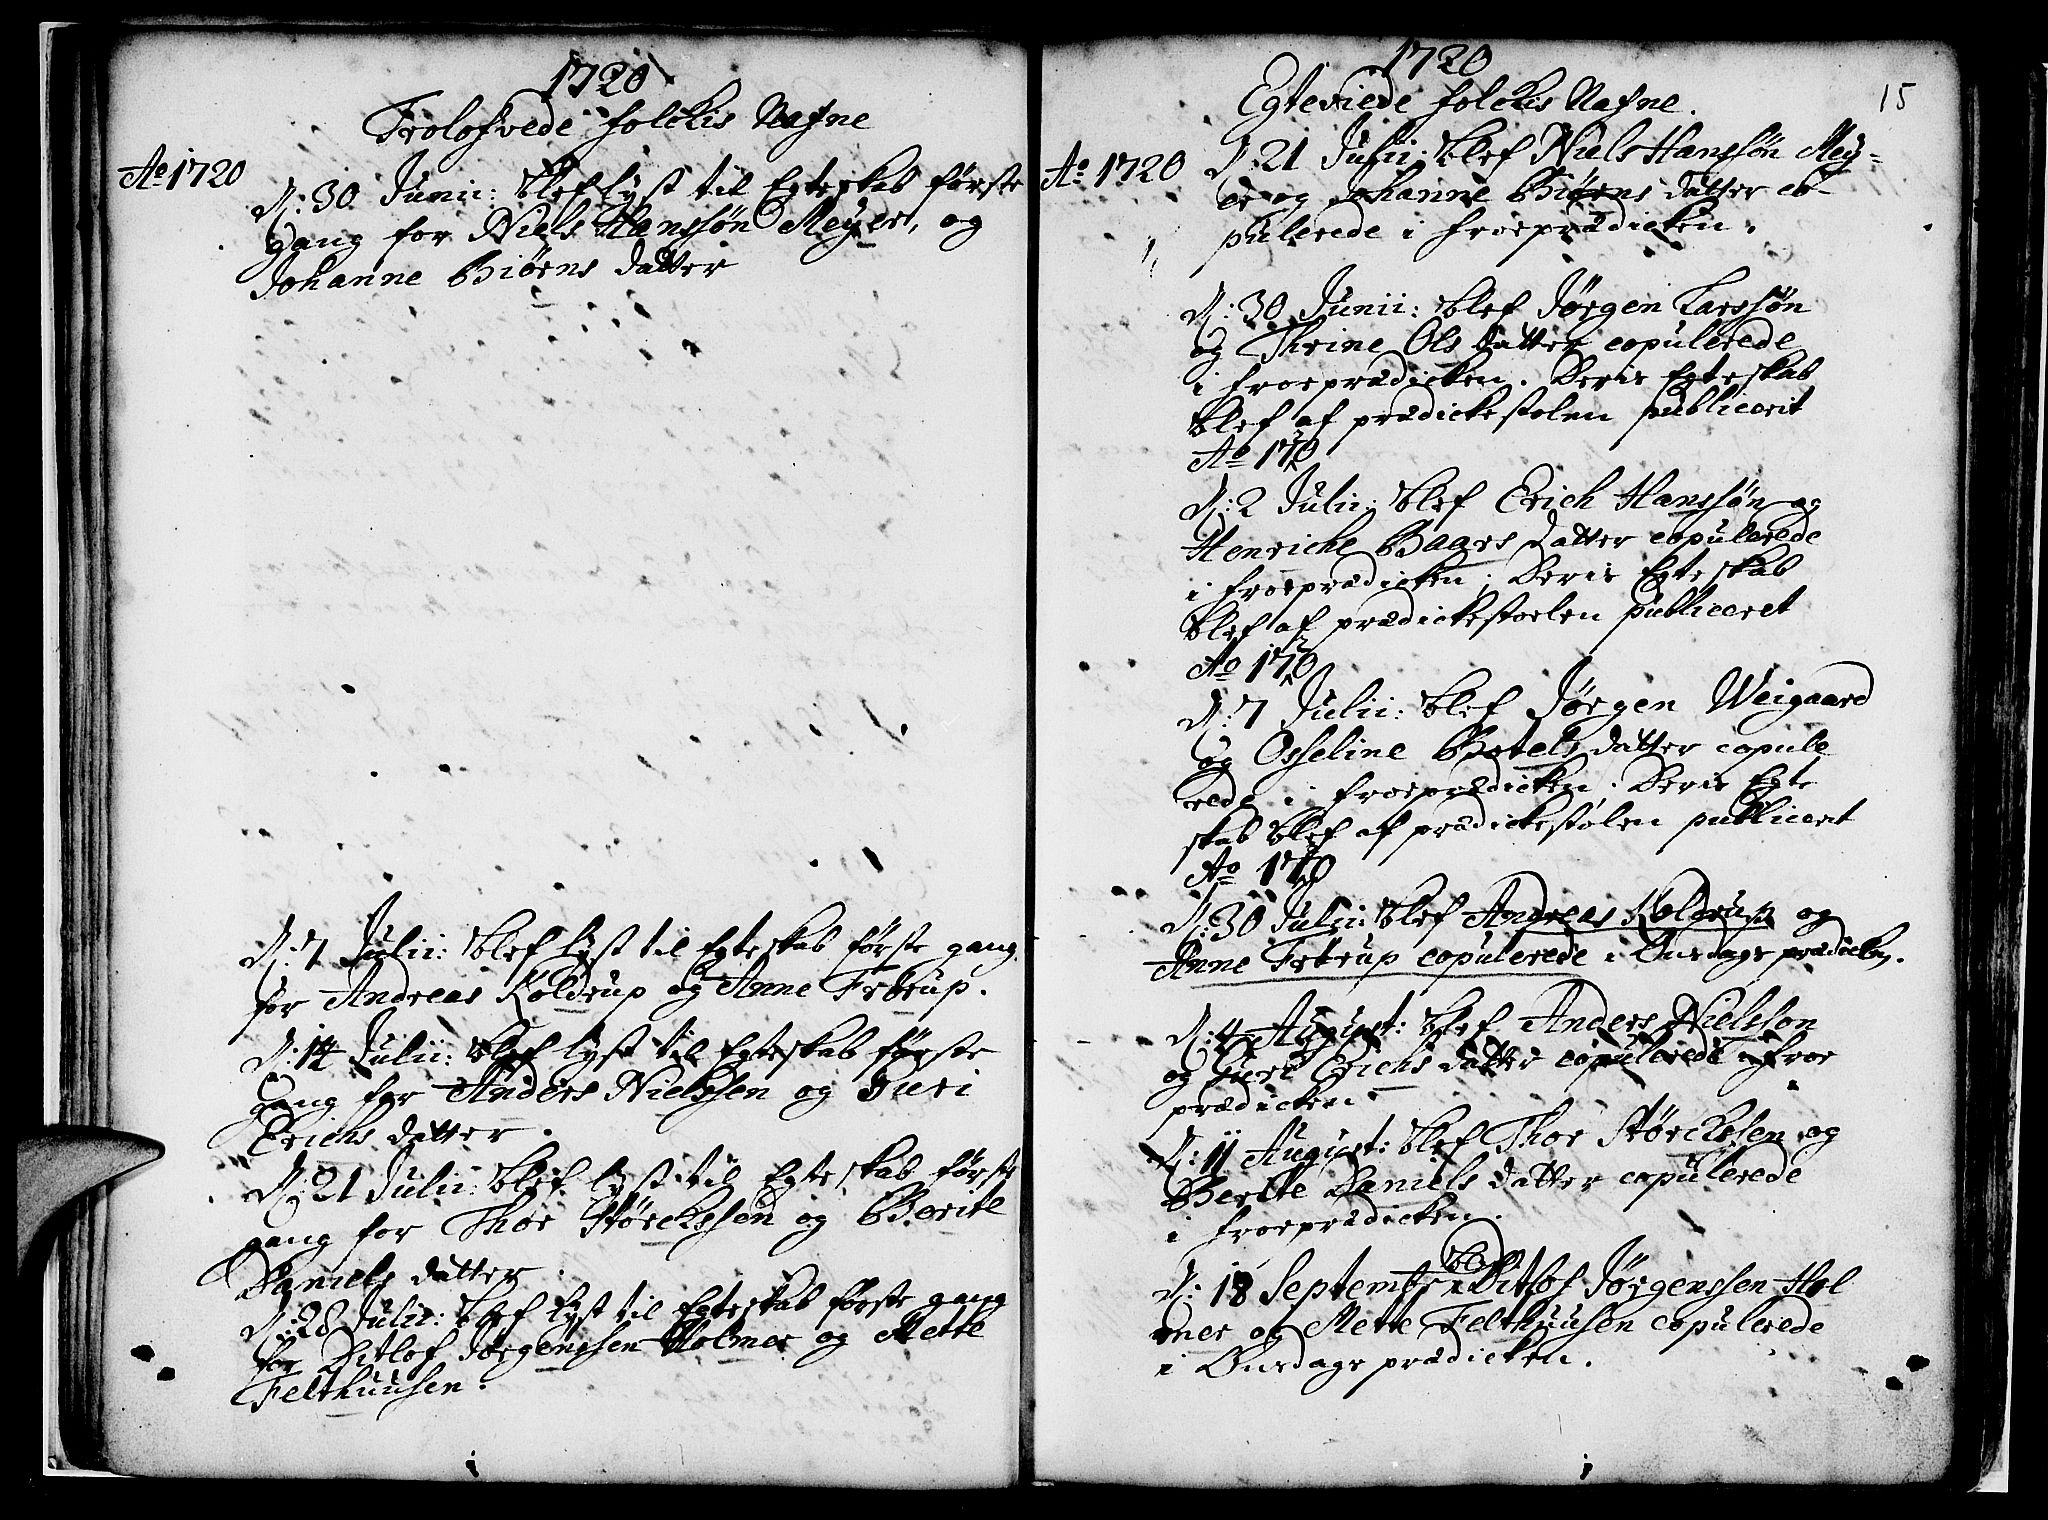 1720
Trolofvede folckis Nafne
Ao 1720
D: 30 Junii: blef lyst til Egteskab første
gang for Niels Hanssøn Meyer, og
Johanne Biørns datter
D: 7 Julii: blef lyst til Egteskab første gang
for Andreas Koldrup og Anne Frtrup.
D: 14 Julii: blef lyst til Egteskab første
gang for Anders Nielssen og Guri
Erichs datter.
D: 21 Julii: blef lyst til Egteskab første
gang for Thor Størckssen og Berite
Daniels datter.
D: 28 Julii: blef lyst til Egteskab første gang
for Ditlof Jørgenssen Holmer og Mette
Felthuusen.
1720
15
Egteviede folckis Nafne.
Ao 1720
D: 21 Julii: blef Niels Hanssøn Mey=
er og Johanne Biørns datter co-
pulerede i froeprædicken.
D: 30 Junii: blef Jørgen Larssøn
og Thrine Ols datter copulerede
i froeprædicken. Deris Egteskab
blef af prædickestolen publicerit
Ao 1720
D: 2 Julii: blef Erich Hanssøn og
Henriche Baars datter copulerede
i froeprædicken. Deris Egteskab
blef af prædickestoelen publiceret
Ao 1720
D: 7 Julii: blef Jørgen Weigaard
og Osseline Botels datter copule
rede i froeprædicken. Deris Egte
skab blef af prædickestolen publicert
Ao 1720
D: 30 Julii: blef Andreas Koldrup og
Anne Frtrup copulerede i Onsdags prædicken.
D: 4 August: blef Anders Nielsson
og Guri Erichs datter copulerede i froe
prædicken.
D: 11 August: blef Thor Størckssen og
Berite Daniels datter copulerede
i froeprædicken.
D: 18 Septembr: blef Ditlof Jørgenssen Hol
mer og Mette Felthuusen copulerede
i Onsdags prædicken.